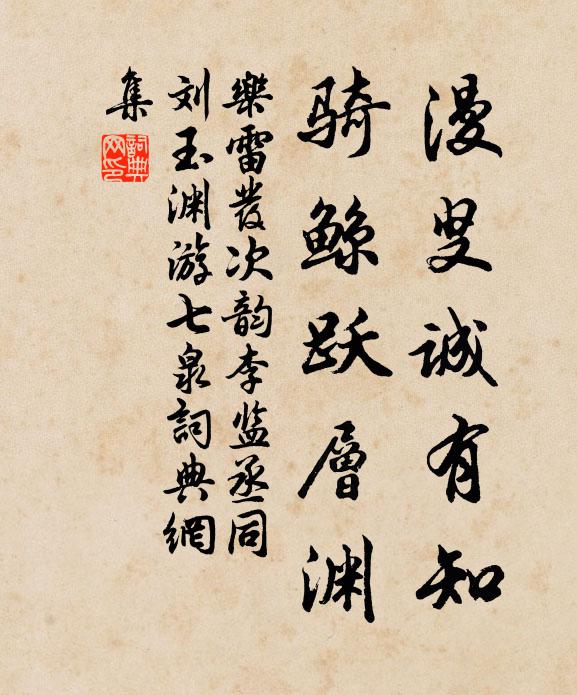 漫叟诚有知
骑鲸跃层渊
樂雷發次韵李监丞同
刘玉渊游七泉詞典網
集
詞典网印